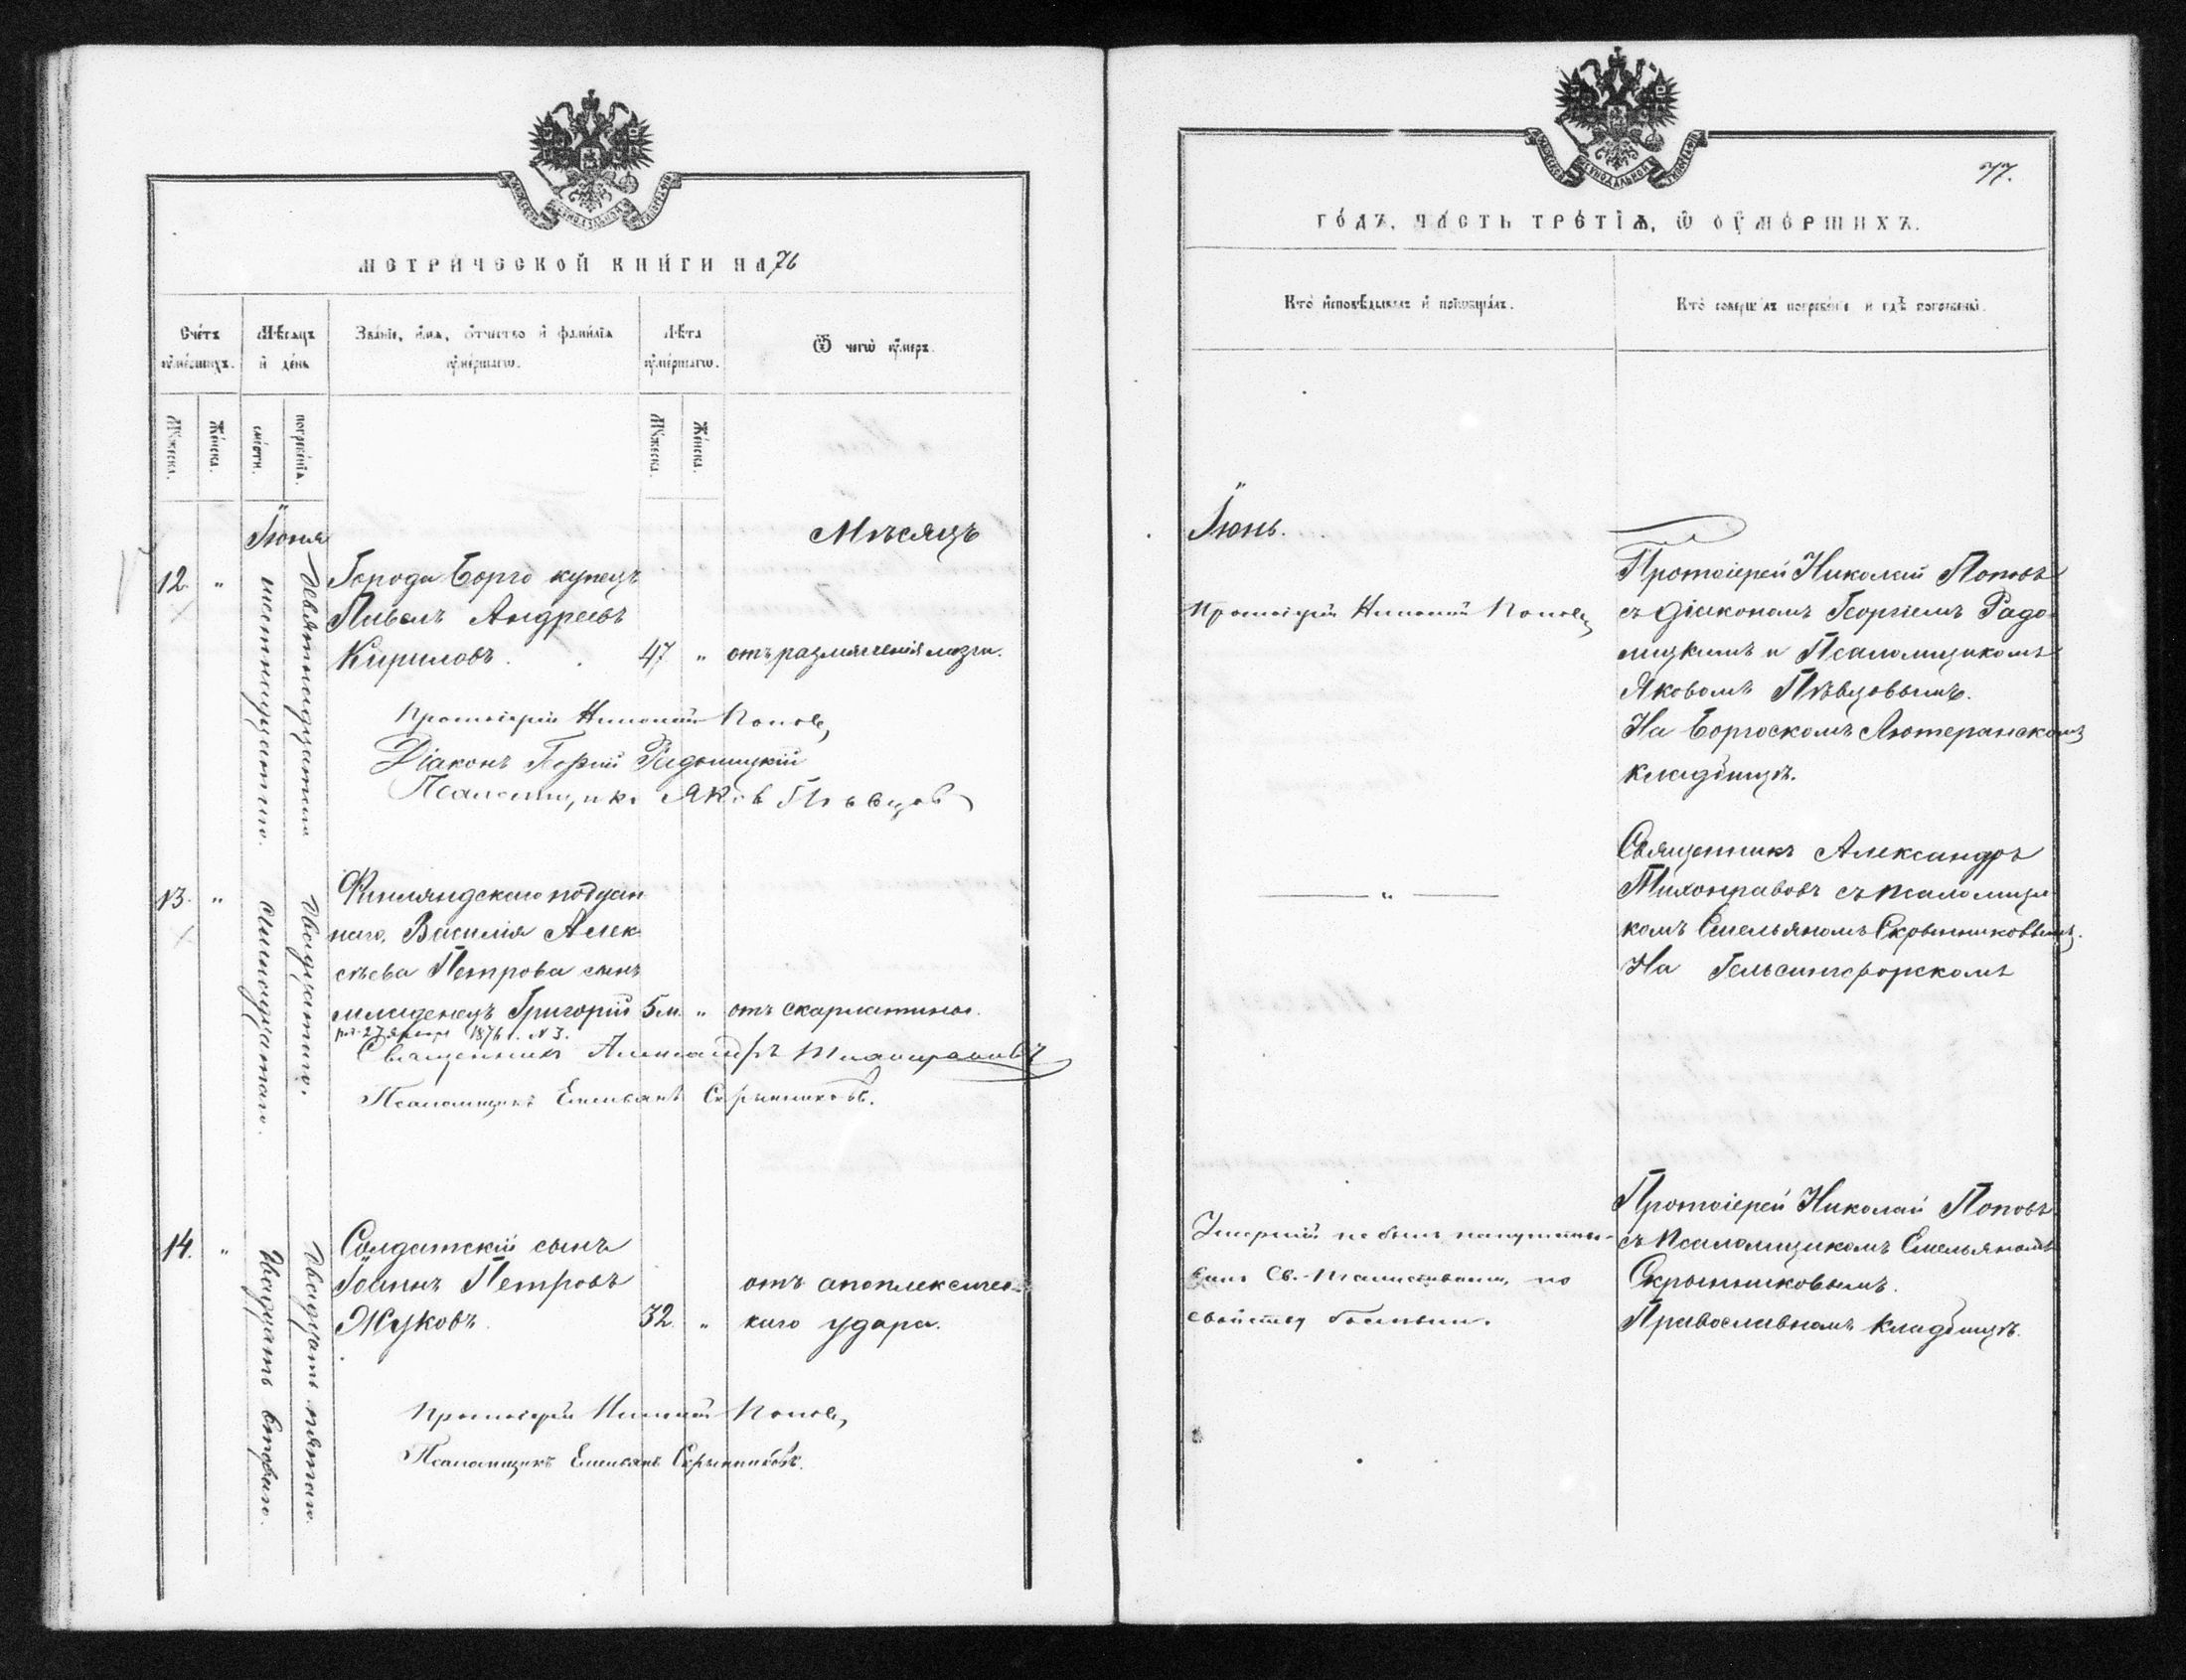 МЕТРИ́ЧЕСКОЙ КНИ́ГИ НА 76
Сче́тъ ᲂу҆ме́ршихъ.
Мѣ́сѧцъ и҆ де́нь
Зва́нїе, и҆́мѧ, ѻ҆́тчество и҆ фами́лїѧ ᲂу҆ме́ршагѡ.
Лѣ́та ᲂу҆ме́ршагѡ.
Ѿ чегѡ̀ ᲂу҆́меръ.
Мꙋ́жеска.
Же́нска.
сме́рти.
погребе́нїѧ.
Мꙋ́жеска.
Же́нска.
Іюня
Мѣсяцъ
12. "
шестнадцатаго.
девятнадцатаго
Города Борго купецъ
Павелъ Андреевъ
Кириловъ. 47 " отъ размягченія мозга.
Протоіерей Николай Поповъ,
Діаконъ Георгій Радомицкій
Псаломщикъ Яковъ Пѣвцовъ
13. "
двадцатаго.
Финляндскаго поддан
наго, Василія Алек
сѣева Петрова сынъ
младенецъ Григорій 5 м. " отъ скарлатины.
род. 27 января 1876 г. № 3.
Священникъ Александръ Тихонравовъ
Псаломщикъ Емельянъ Скрынниковъ.
14. "
двадцать втораго.
двадцать пятаго.
Солдатскій сынъ
Іоаннъ Петровъ
Жуковъ. 32. "
отъ апоплексичес-
каго удара.
Протоіерей Николай Поповъ,
Псаломщикъ Емельянъ Скрынниковъ.
ГО́ДЪ, ЧА́СТЬ ТРЕ́ТЇѦ, Ѽ ОУ҆МЕ́РШИХЪ.
77.
Кто̀ и҆сповѣ́дывалъ и҆ прїѡбща́лъ.
Кто̀ соверша́лъ погребе́нїе и҆ гдѣ̀ погребены̀.
Іюнь.
Протоіерей Николай Поповъ
Протоіерей Николай Поповъ
съ Діакономъ Георгіемъ Радо
мицкимъ и Псаломщикомъ
Яковомъ Пѣвцовымъ.
На Боргоскомъ Лютеранскомъ
кладбищѣ.
— " —
Священникъ Александръ
Тихонравовъ съ псаломщи
комъ Емельяномъ Скрынниковымъ.
На Гельсингфорскомъ
Умершій не былъ напутство-
ванъ Св. Таинствами, по
свойству болѣзни.
Протоіерей Николай Поповъ
съ Псаломщикомъ Емельяномъ
Скрынниковымъ.
Православномъ кладбищѣ.